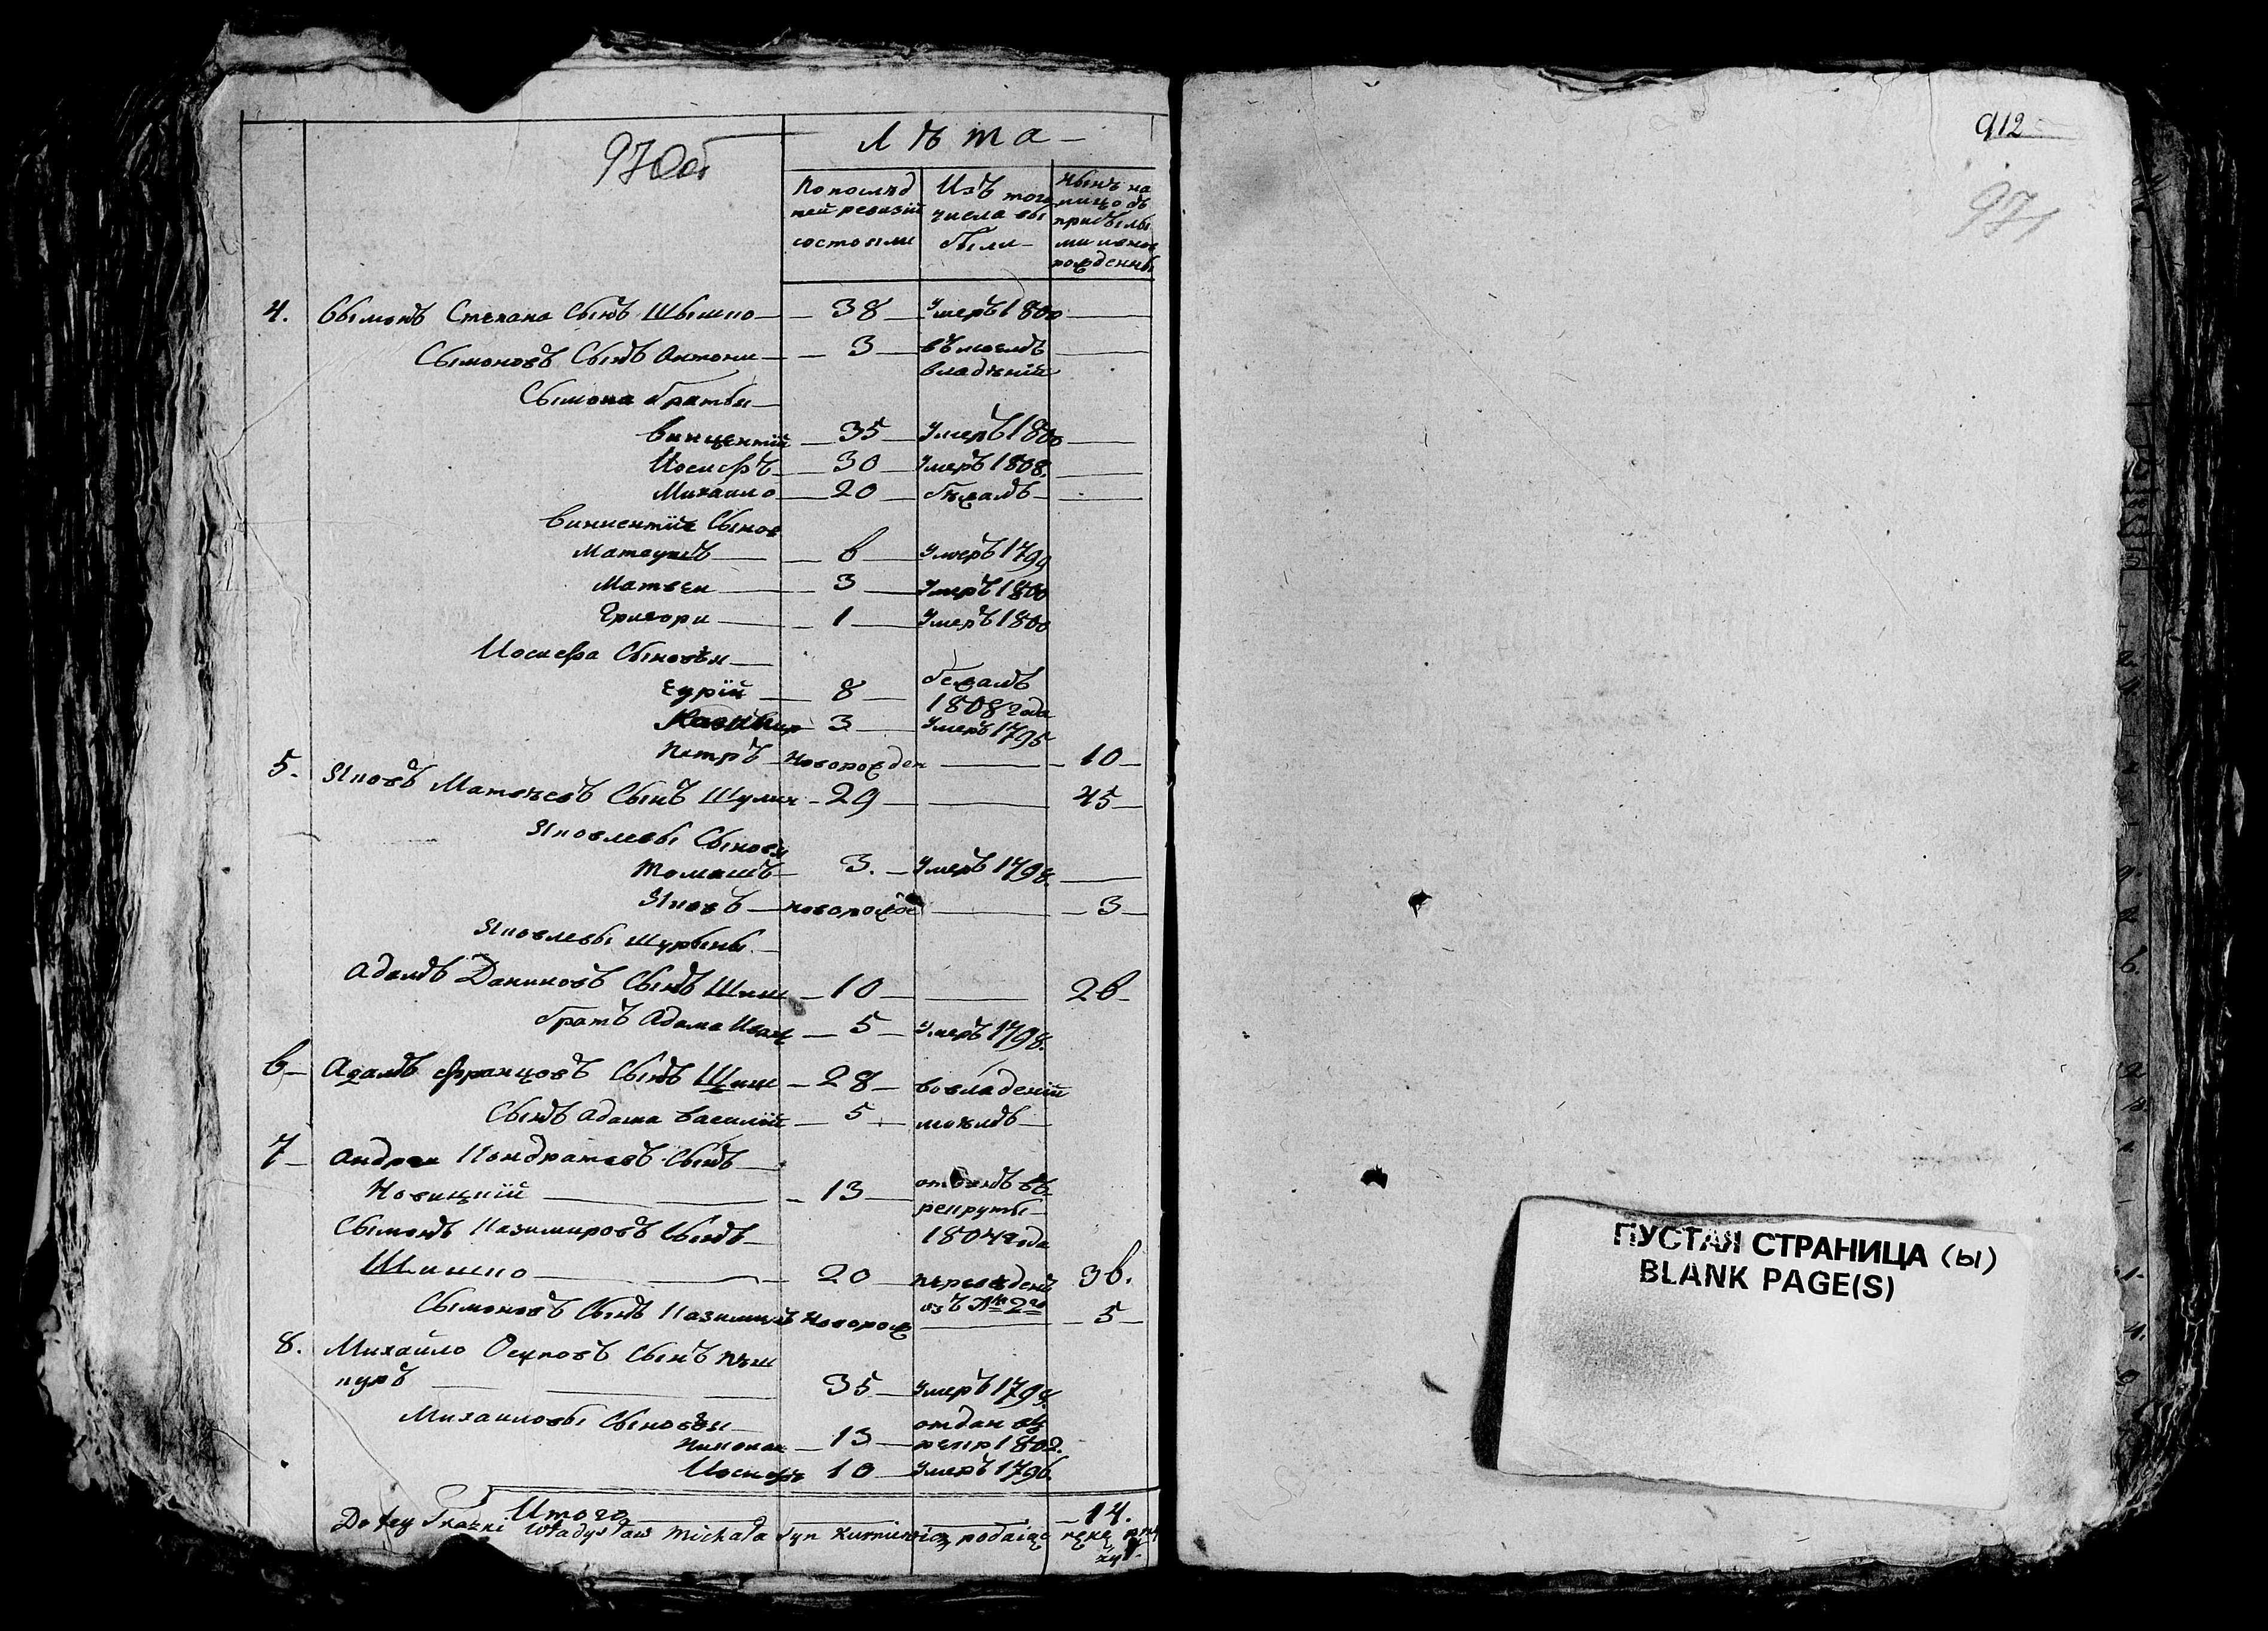 970об
Лѣта
По послѣд Изъ того Нынѣ на
ней ревизіи числа вы лицо съ
состояли были прибылы
ми и ново
рожденны
4. Сымонъ Степана Сынъ Шышко 38 Умеръ 1800
Сымоновъ Сынъ Антони 3 въ моемъ
владѣніи
Сымона братья
Винцентій 35 Умеръ 1800
Иосифъ 30 Умеръ 1808.
Михаило 20 бѣжалъ
Винцентія Сынов
Матеушъ 6 Умеръ 1799
Матвеи 3 Умеръ 1800
Григори 1 Умеръ 1800
Иосифа Сыновья
Еурій 8 бежалъ
1808 года
Казимир 3 Умеръ 1795
Петръ Новорожден 10
5. Яковъ Матвеевъ Сынъ Шулич 29 45
Яковлевы Сыновя
Томашъ 3. Умеръ 1798.
Яковъ новорожде 3
Яковлевы шурыны
Адамъ Даниковъ Сынъ Шиш 10 26
братъ Адама Иван 5 Умеръ 1798.
6 Адамъ Францовъ Сынъ Шиш 28 во владеніи
Сынъ Адама Василій 5 моемъ
7 Андреи Кондратовъ Сынъ
Новицкій 13 отданъ въ
рекруты
Сымонъ Казимировъ Сынъ 1804 года
Шишко 20 переведенъ 36.
изъ № 2го
Сымоновъ Сынъ Казимиръ Новорож 5
8. Михайло Осиповъ Сынъ Пѣш
куръ 35 Умеръ 1798.
Михаиловы Сыновья отдан въ
Николаи 13 рекр 1802.
Иосифъ 10 Умеръ 1796
Итого 14.
Do tey Skazki Władysław Michała Syn Kurniewicz podaiąc rękę
912
971
ПУСТАЯ СТРАНИЦА (Ы)
BLANK PAGE(S)